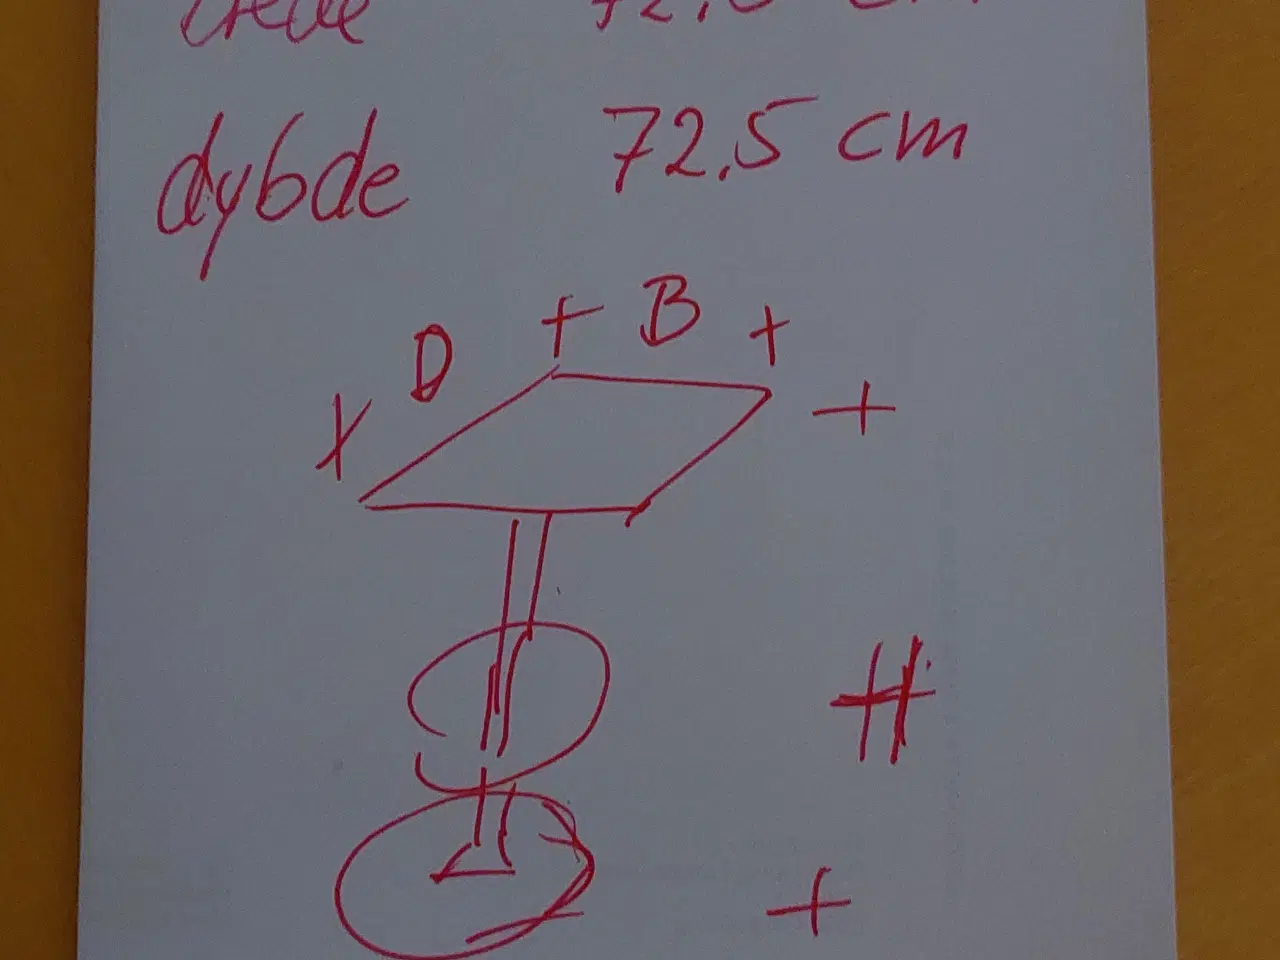 dybde 72.5 cm
B
D
H